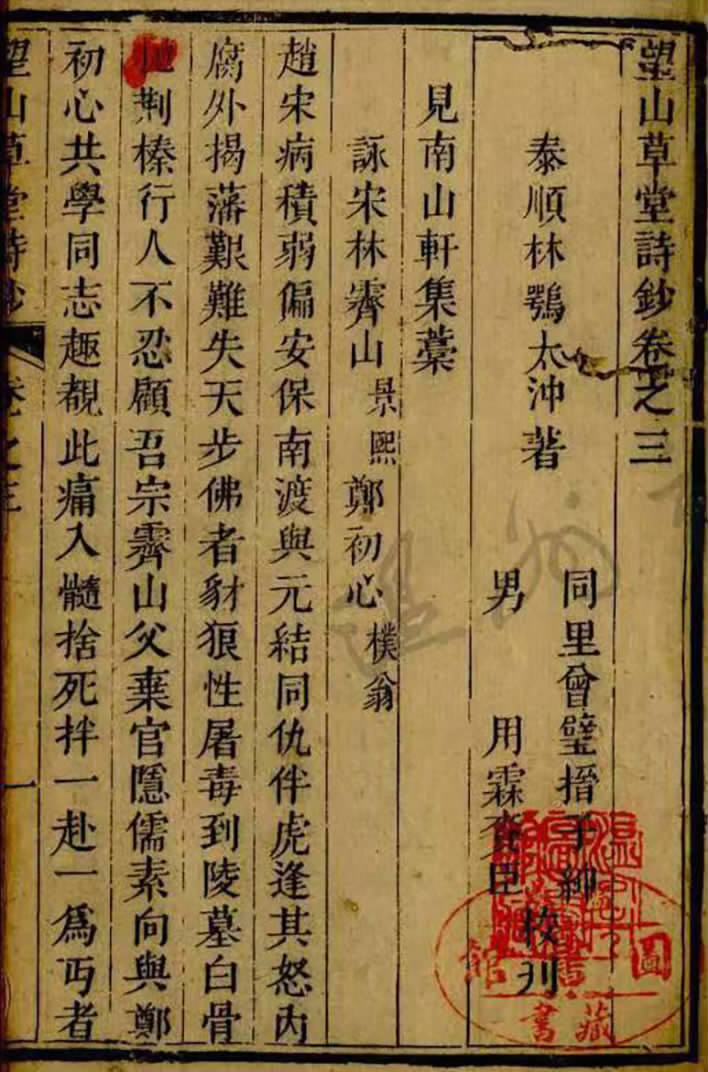 望山草堂詩鈔卷之三
泰順林鶚太沖著
同里曾璧搢子紳
男 用霖 臣
校刋
見南山軒集藁
詠宋林霽山景熙鄭初心樸翁
趙宋病積弱偏安保南渡與元結同仇伴虎逢其怒內
腐外揭藩艱難失天步佛者豺狼性屠毒到陵墓白骨
荆榛行人不忍顧吾宗霽山父棄官隱儒素向與鄭
初心共學同志趣覩此痛入髓捨死拌一赴一為丐者
望山草堂詩鈔
卷之三
一
圖
館
藏
書